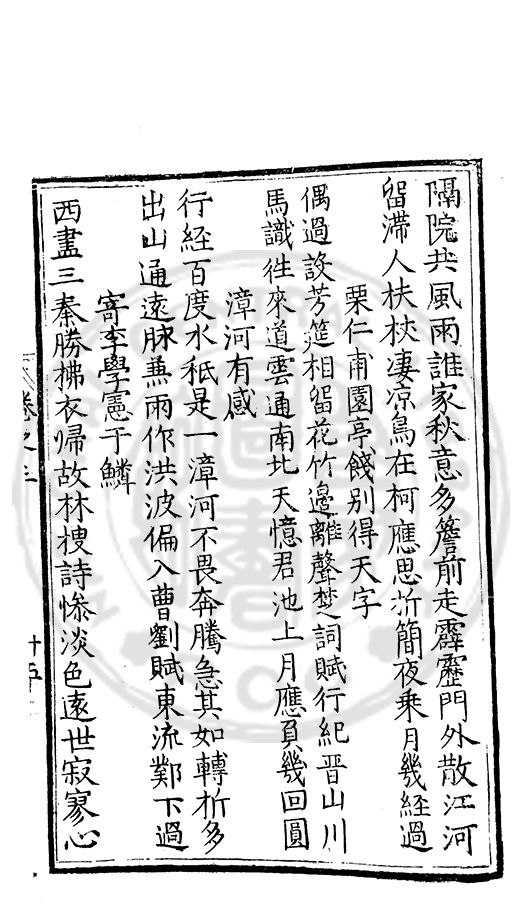 隔院共風雨誰家秋意多簷前走霹靂門外散江河
留滯人扶杖凄凉鳥在柯應思折簡夜乘月幾經過
栗仁甫園亭餞别得天字
偶過設芳筵相留花竹邊離聲楚詞賦行紀晋山川
馬識徃來道雲通南北天憶君池上月應負幾回圓
漳河有感
行經百度水秖是一漳河不畏奔騰急其如轉折多
出山通遠脉兼雨作洪波偏入曹劉賦東流鄴下過
寄李學憲于鱗
西盡三秦勝拂衣歸故林搜詩慘淡色遠世寂寥心
卷之
十五